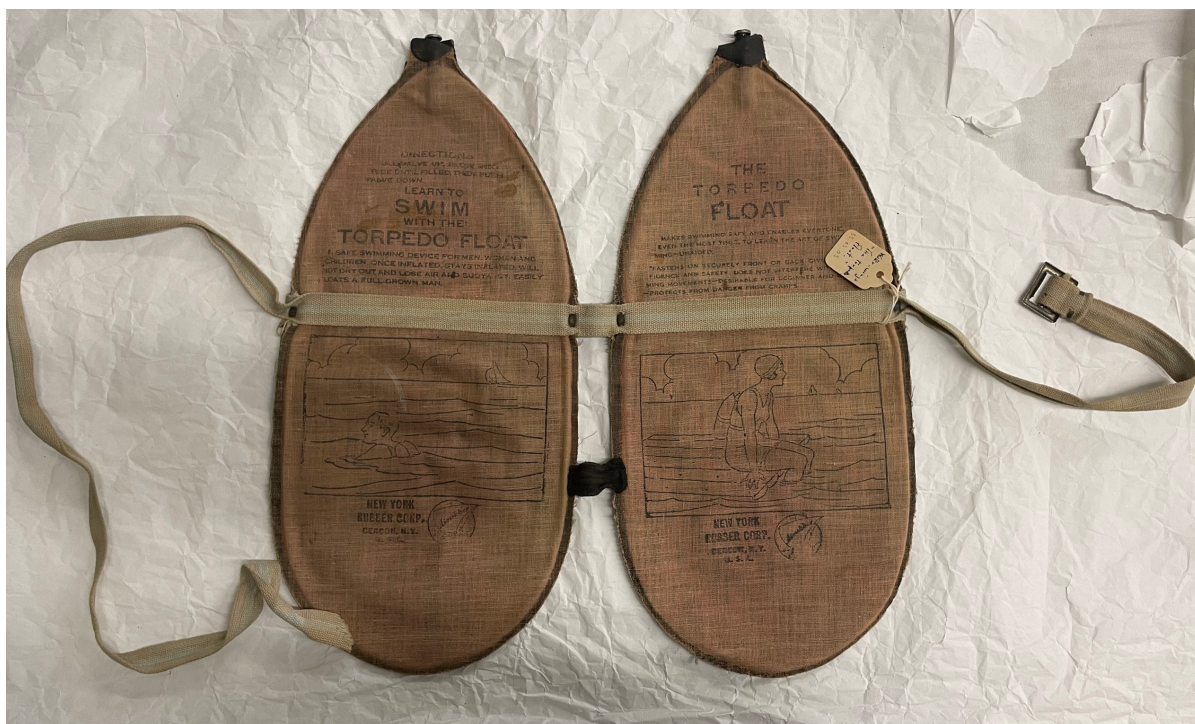 DIRECTIONS
VALVE DOWN.
LEARN TO
SWIM
WITH THE
TORPEDO FLOAT
A SAFE SWIMMING DEVICE FOR MEN, WOMEN AND
CHILDREN. ONCE INFLATED, STAYS INFLATED. WILL
NOT DRY OUT AND LOSE AIR AND BUOYANCY. EASILY
FLOATS A FULL GROWN MAN.
NEW YORK
RUBBER CORP.
BEACON, N.Y.
U. S. A.
THE
TORPEDO
FLOAT
MAKES SWIMMING SAFE AND ENABLES EVERYONE,
EVEN THE MOST TIMID, TO LEARN THE ART OF
MING—UNAIDED.
FASTENS ON SECURELY FRONT OR BACK
FIDENCE AND SAFETY. DOES NOT INTERFERE
MING MOVEMENTS—DESIRABLE FOR BEGINNER AND
—PROTECTS FROM DANGER FROM CRAMPS.
NEW YORK
RUBBER CORP.
BEACON, N.Y.
U. S. A.